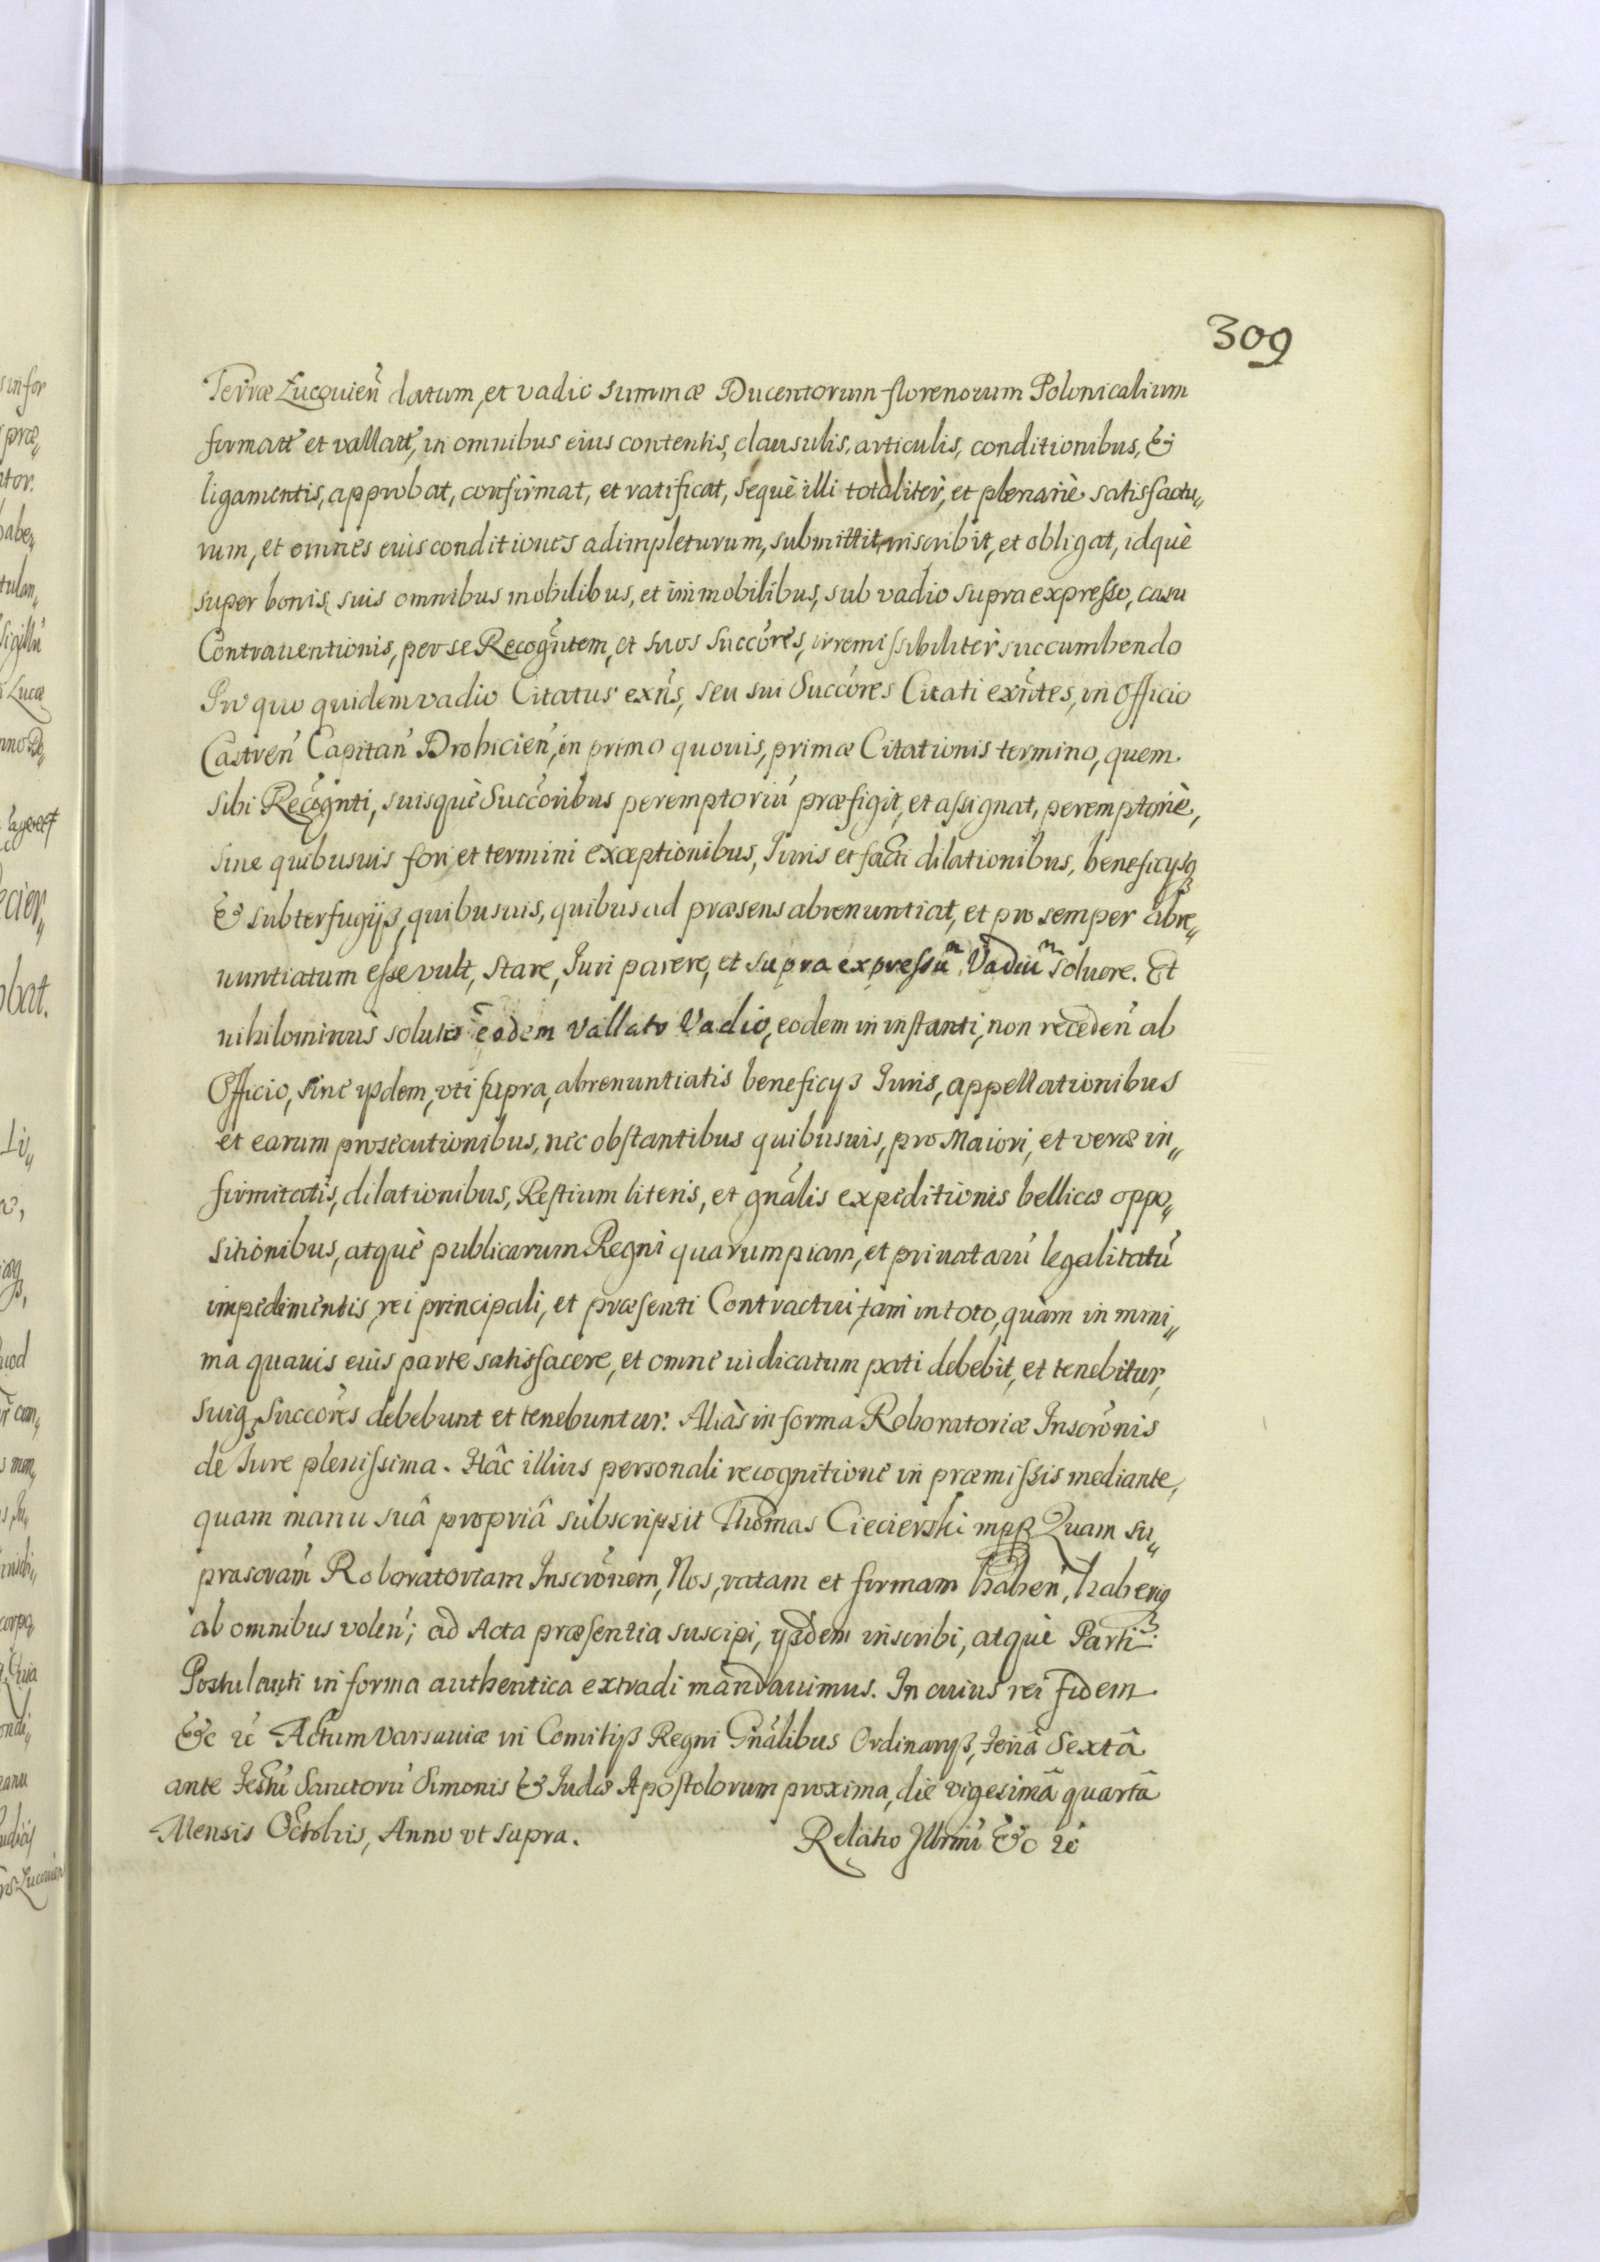 309
Terræ Łucouień datum, et vadio summæ Ducentorum florenorum Polonicalium
firmatt et vallatt, in omnibus eius contentis, clausulis, articulis, conditionibus, &
ligamentis, approbat, confirmat, et ratificat, seque illi totaliter, et plenariè satisfactu„
rum, et omnes euis conditiones adimpleturum, submittit, inscribit, et obligat, idquè
super bonis suis omnibus mobilibus, et immobilibus, sub vadio supra expresso, casu
Contrauentionis, per se Recogntem, et suos Succores, irremissibiliter succumbendo
In quo quidem vadio Citatus exñs, seu sui Succores Citati exñtes, in Officio
Castreń Capitań Drohicień, in primo quouis, primæ Citationis termino, quem
sibi Recognti, suisquè Succoribus peremptoriú præfigit, et assignat, peremptoriè,
sine quibusuis fori, et termini exceptionibus, Iuris et facti dilationibus, beneficysq
& subterfugijs, quibusuis, quibus ad præsens abrenuntiat, et pro semper abre„
nuntiatum esse vult, stare, Iuri parere, et supra expressũm Vadiũm soluere. Et
nihilominus soluto eodem vallato Vadio, eodem in instanti, non recedeń ab
Officio, sine ysdem, vti supra, abrenuntiatis beneficys Iuris, appellationibus
et earum prosecutionibus, nec obstantibus quibusuis, pro Maiori, et veræ in„
firmitatis, dilationibus, Restium literis, et gnãlis expeditionis bellicæ oppo„
sitionibus, atquè publicarum Regni quarumpiam, et priuatarú legalitatú
impedimentis, rei principali, et præsenti Contractui, tam in toto, quàm in mini„
ma quauis euis parte satisfacere, et omne iudicatum pati debebit, et tenebitur,
suiq Succores debebunt et tenebuntur. Aliàs in forma Roboratoriæ Inscrõnis
de Iure plenissima. Hâc illius personali recognitione in præmissis mediante,
quam manu suâ propriâ subscripsit Thomas Ciecierski mpp Quam su„
prascrám Roboratoriam Inscrõnem, Nos, ratam et firmam habeń, haberiq
ab omnibus voleń; ad Acta præsentia suscipi, ysdem inscribi, atquè Parti
Postulanti in forma authentica extradi mandauimus. In cuius rei fidem
&c ec Actum Varsauiæ in Comitijs Regni Gnãlibus Ordinarys, Feriâ Sextâ
ante Festú Sanctorú Simonis & Iudæ Apostolorum proxima, die vigesimâ quartâ
Mensis Octobris, Anno vt supra. Relatio Illrmi &c ec